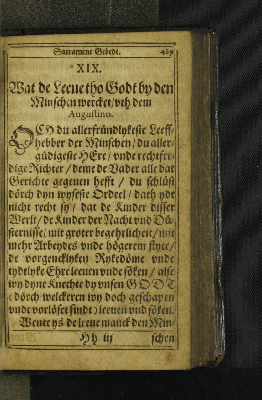 Sacrament Gebede. 489
XIX.
Wat de Leeue tho Godt by den
Minschen wercket / vth dem
Augustino.
OCH du allerfründtlykeste Leeff-
hebber der Minschen / du aller-
güdigeste HErr / vnde rechtfer-
dige Richter / deme de Vader alle dat
Gerichte gegeuen hefft / du schlüst
dörch dyn wyseste Ordeel / dath ydt
nicht recht sy / dat de Kinder disser
Werlt / de Kinder der Nacht vnd Dü-
sternisse / mit groter begehrlicheit / mit
mehr Arbeydes vnde högerem flyte /
de vorgencklyken Rykedöme vnde
tydtlyke Ehre leeuen vnde söken / alse
wy dyne Knechte dy vnsen GODT
(dörch welckeren wy doch geschapen
vnde vorlöset sindt) leeuen vnd söken.
Wente ys de leeue manck den Min-
Hh iij schen